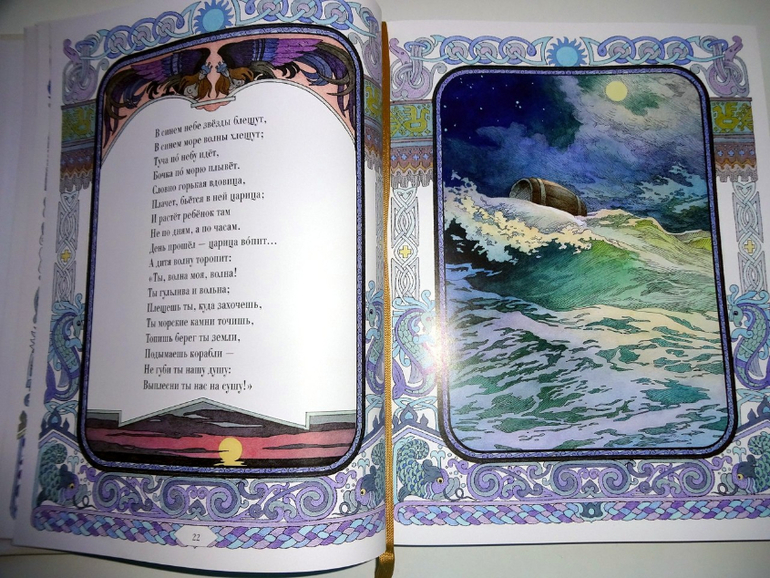 В синем небе звёзды блещут,
В синем море волны хлещут;
Туча по́ небу идёт,
Бочка по́ морю плывёт.
Словно горькая вдовица,
Плачет, бьётся в ней царица;
И растёт ребёнок там
Не по дням, а по часам.
День прошёл — царица во́пит...
А дитя волну торопит:
«Ты, волна моя, волна!
Ты гульлива и вольна;
Плещешь ты, куда захочешь,
Ты морские камни точишь,
Топишь берег ты земли,
Подымаешь корабли —
Не губи ты нашу душу:
Выплесни ты нас на сушу!»
22